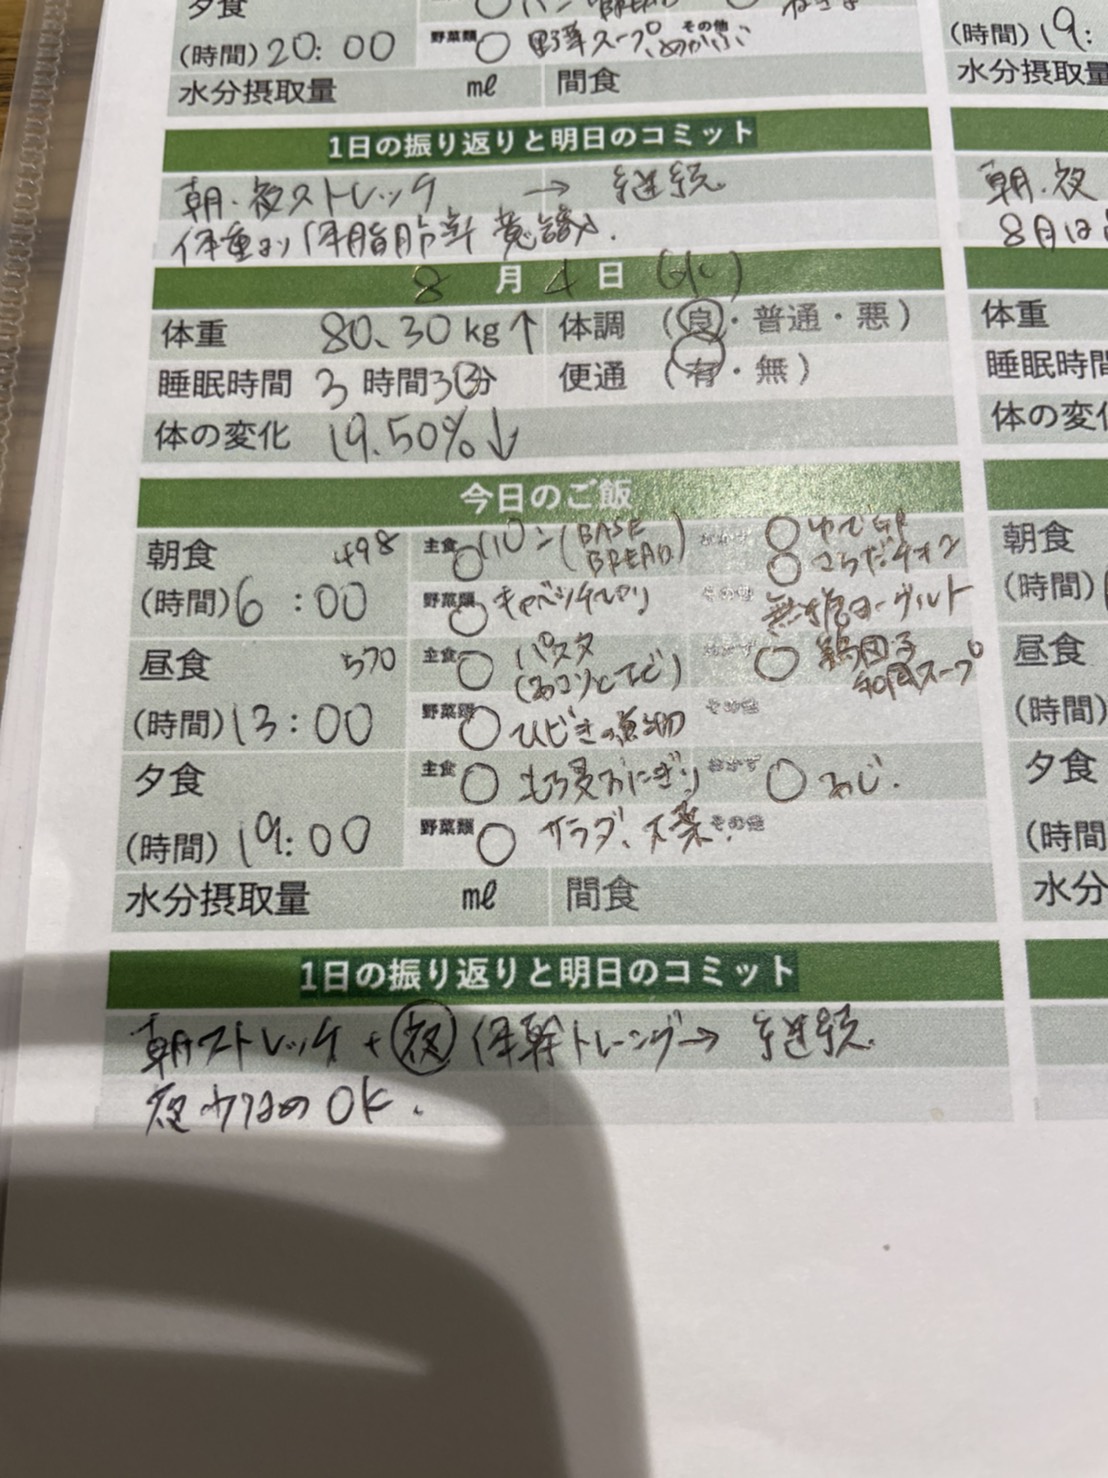 夕食
(時間) 20:00
野菜類 ○ 野菜スープ、めかぶ その他
水分摂取量 ml 間食
1日の振り返りと明日のコミット
朝・夜ストレッチ → 継続
体重より体脂肪率 意識
8月4日 (水)
体重 80.30kg↑ 体調 (良・普通・悪)
睡眠時間 3時間30分 便通 (有・無)
体の変化 19.50%↓
今日のご飯
朝食 498 主食 ○パン(BASE BREAD) おかず ○ゆで卵
○さらだチキン
(時間) 6:00 野菜類 ○キャベツ その他 無糖ヨーグルト
昼食 570 主食 ○パスタ おかず ○鶏団子
和風スープ
(時間) 13:00 野菜類 ○ひじきの煮物 その他
夕食 主食 ○もち麦おにぎり おかず ○あじ.
(時間) 19:00 野菜類 ○サラダ、 その他
水分摂取量 ml 間食
1日の振り返りと明日のコミット
朝ストレッチ+夜 体幹トレーング→ 継続.
夜 OK.
(時間) 19:
水分摂取量
朝・夜
8月は
体重
睡眠時間
体の変化
朝食
(時間)
昼食
(時間)
夕食
(時間
水分